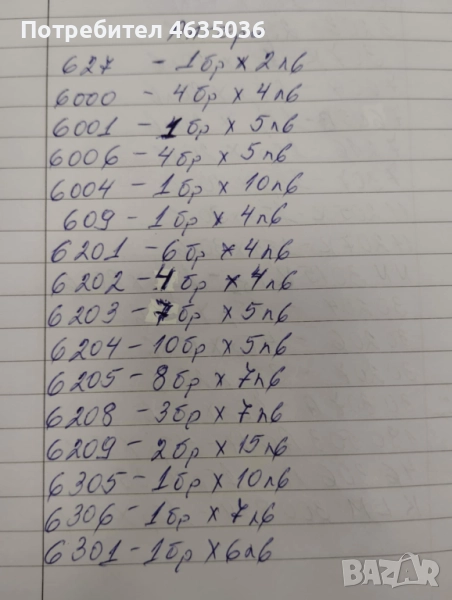 Потребител 4635036
627 - 1бр × 2лв
6000 - 4бр × 4лв
6001 - 1бр × 5лв
6006 - 4бр × 5лв
6004 - 1бр × 10лв
609 - 1бр × 4лв
6201 - 6бр × 4лв
6202 - 4бр × 4лв
6203 - 7бр × 5лв
6204 - 10бр × 5лв
6205 - 8бр × 7лв
6208 - 3бр × 7лв
6209 - 2бр × 15лв
6305 - 1бр × 10лв
6306 - 1бр × 7лв
6301 - 1бр × 6лв
BAZAR